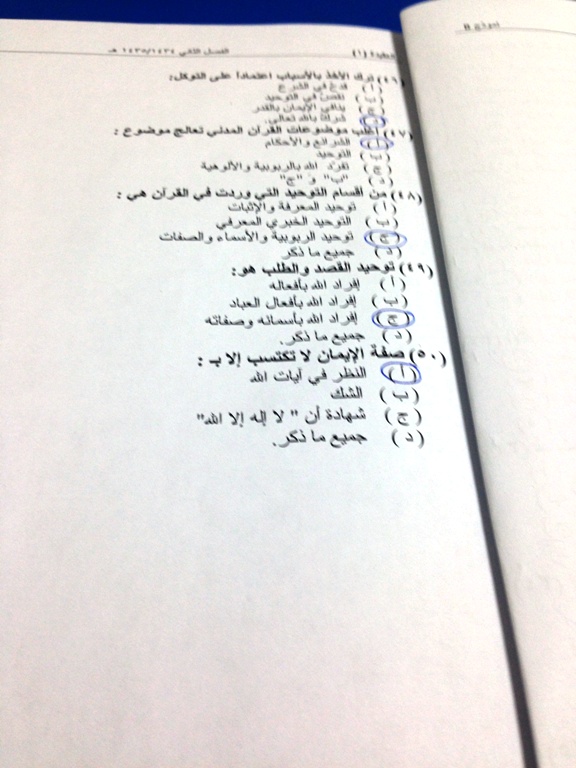 نموذج B
عقيدة (١) الفصل الثاني ١٤٣٥/١٤٣٤ هـ
(٤٦) ترك الأخذ بالأسباب اعتماداً على التوكل:
(أ) قدح في الشرع
(ب) نقص في التوحيد
(ج) ينافي الإيمان بالقدر
(د) شرك بالله تعالى.
(٤٧) أغلب موضوعات القرآن المدني تعالج موضوع :
(أ) الشرائع والأحكام
(ب) التوحيد
(ج) تفرد الله بالربوبية والألوهية
(د) "ب" و "ج"
(٤٨) من أقسام التوحيد التي وردت في القرآن هي :
(أ) توحيد المعرفة والإثبات
(ب) التوحيد الخبري المعرفي
(ج) توحيد الربوبية والأسماء والصفات
(د) جميع ما ذكر
(٤٩) توحيد القصد والطلب هو:
(أ) إفراد الله بأفعاله
(ب) إفراد الله بأفعال العباد
(ج) إفراد الله بأسمائه وصفاته
(د) جميع ما ذكر.
(٥٠) صفة الإيمان لا تكتسب إلا بـ :
(أ) النظر في آيات الله
(ب) الشك
(ج) شهادة أن " لا إله إلا الله"
(د) جميع ما ذكر.